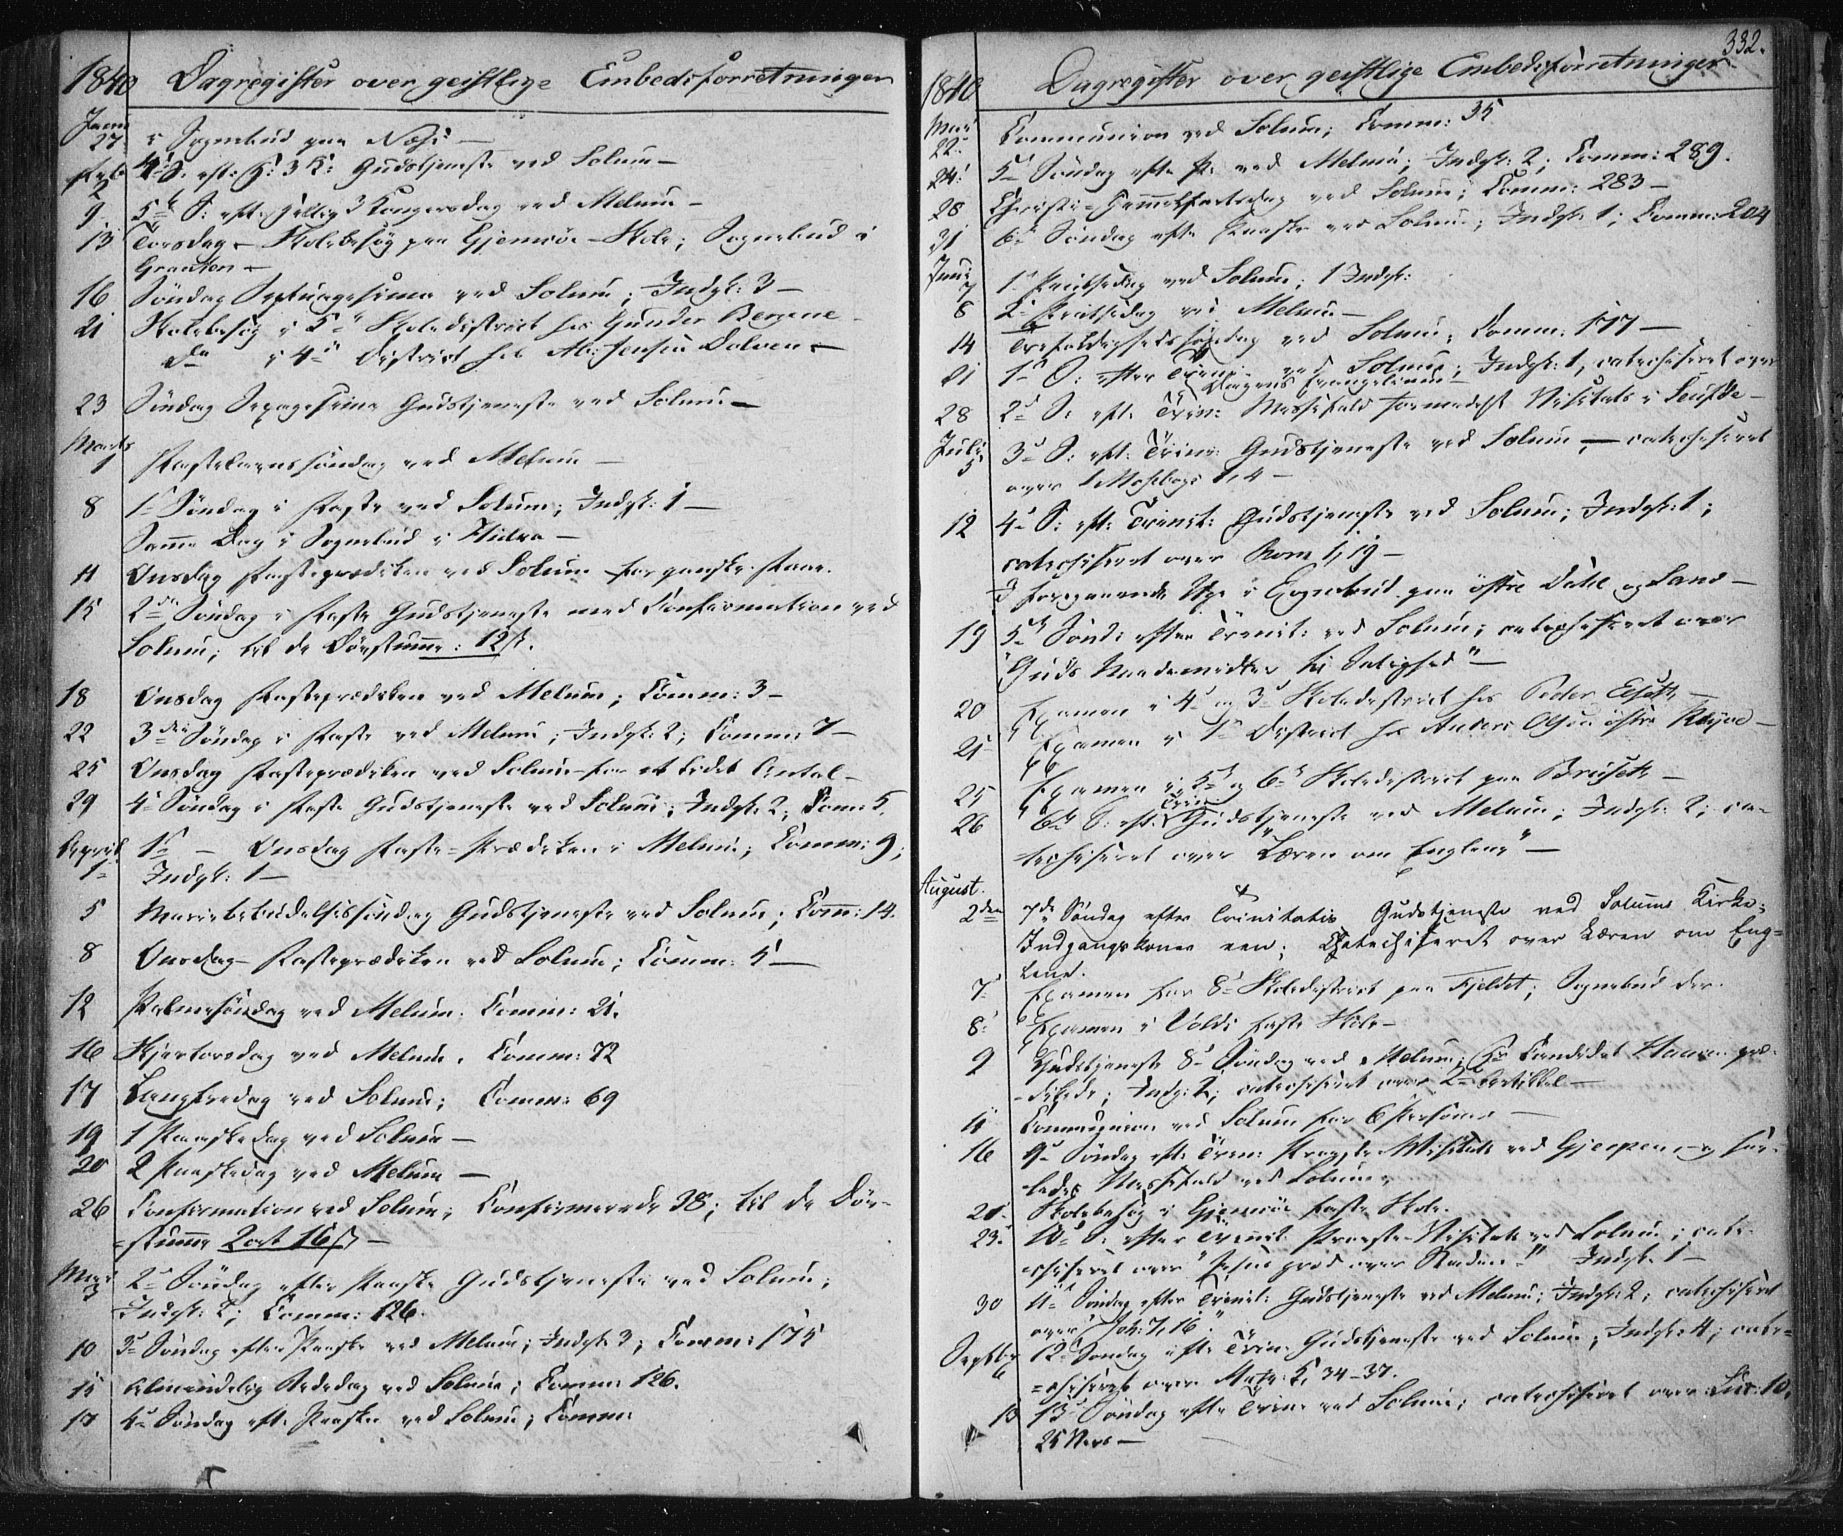 1840 Dagregister over geistlige Embedsforretninger
Januar
27 i Sognebud paa Næss —
Febr. 2 4d S: eft: H: 3 K: Gudstjeneste ved Solum —
9 5te S: eft: Hellig 3 Kongersdag ved Melum —
13 Torsdag — Skolebesøg paa Gjemsøe-Skole; Sognebud i
Graaten —
16 Søndag Septuagesima ved Solum; Indgk: 3 —
21 Skolebesøg i 5te Skoledistrict hos Gunder Bergene —
do i 4de District hos Jensen Dolven —
23 Søndag Sexagesima Gudstjeneste ved Solum —
Marts
1 Fastelavenssøndag ved Melum —
8 1ste Søndag i Faste ved Solum; Indgk: 1 —
Samme Dag i Sognebud i —
11 Onsdag Fasteprædiken ved Solum for ganske Faae.
15 2den Søndag i Faste Gudstjeneste med Confirmation ved
Solum; til de Døvstumme: 12 ß.
18 Onsdag Fasteprædiken ved Melum; Comm: 3 —
22 3die Søndag i Faste ved Melum; Indgk: 2; Comm: 7 —
25 Onsdag Fasteprædiken ved Solum for et lidet Antal —
29 4d Søndag i Faste Gudstjeneste ved Solum; Indgk: 2; Comm: 5.
April
1 1ste — Onsdag Faste-Prædiken i Melum; Comm: 9;
Indgk: 1 —
5 Mariæbebudelsessøndag Gudstjeneste ved Solum; Comm: 14.
8 Onsdag — Fasteprædiken ved Solum; Comm: 5 —
12 Palmesøndag ved Melum. Comm: 21.
16 Skjertorsdag ved Melum. Comm: 72
17 Langfredag ved Solum; Comm: 69
19 1 Paaskedag ved Solum —
20 2 Paaskedag ved Melum —
26 Confirmation ved Solum; Confirmerede 38; til de Døv-
stumme 2 ort 16 ß —
Mai
3 2d Søndag efter Paaske Gudstjeneste ved Solum;
Indgk: 2; Comm: 126.
10 3d Søndag efter Paaske ved Melum; Indgk: 3; Comm: 175
15 Almindelig Bededag ved Solum; Comm: 126.
17 4d Søndag eft: Paaske ved Solum; Comm:
332.
1840 Dagregister over geistlige Embedsforretninger
Mai
22 Communion ved Solum; Comm: 35
24 5te Søndag efter P: ved Melum; Indgk: 2; Comm: 289.
28 Christi-Himmelfartsdag ved Solum; Comm: 283 —
31 6te Søndag efter Paaske ved Solum; Indgk: 1; Comm: 204
Juni
7 1ste Pintsedag ved Solum; 1 Indgk:
8 2d Pintsedag ved Melum —
14 Trefoldighedssøndag ved Solum; Comm: 177 —
21 1ste S: efter Trin: ved Solum; Indgk: 1, catechiseret over
Dagens Evangelium —
28 2d S: eft: Trin: Messefald formedelst Visitats i —
Juli
5 3d S: eft: Trin: Gudstjeneste ved Solum — catechiseret
over 1 Mosebogs 1, 4 —
12 4d S: eft: Trinit: Gudstjeneste ved Solum; Indgk: 1;
catechiseret over Rom 1, 19 —
I foregaaende Uge i Sognebud paa østre Dahl og —
19 5te Sønd: efter Trinit: ved Solum; catechiseret over
"Guds Naademidler til Salighed" —
20 Examen i 4d og 3d Skoledistrict hos Peder —
21 Examen i 1ste District hos Anders Olsen østre —
25 Examen i 5te og 6te Skoledistrict paa —
26 6te S: eft: Trin: Gudstjeneste ved Melum; Indgk: 2; ca-
techiseret over "Læren om Englene" —
August.
2den 7de Søndag efter Trinitatis Gudstjeneste ved Solums Kirke;
Indgangskoner een; Catechiseret over Læren om Eng-
lene.
7 Examen for 8d Skoledistrict paa Fjeldet; Sognebud der.
8 Examen i Volds faste Skole —
9 Gudstjeneste 8d Søndag ved Melum; Hr Candidat præ-
dikede; Indg: 2; catechiseret over 2den Artikkel —
11 Communion ved Solum for 6 Personer —
16 9d Søndag eft: Trin: Provste-Visitats ved Gjerpen, og saa-
ledes Messefald ved Solum.
21 Skolebesøg i Gjemsøe faste Skole.
23 10d S: efter Trinit: Provste-Visitats ved Solum; cate-
chiseret over "Jesus græd over Staden" Indgk: 1 —
30 11te Søndag efter Trinit: Gudstjeneste ved Melum; Indgk: 2; catechiseret
over "Joh: 7, 16".
Septbr
6 12te Søndag eft: Trin: Gudstjeneste ved Solum; Indgk: 4; cate-
chiseret over Math: 5, 34-37.
13 13de Søndag efter Trin: ved Solum; catechiseret over Luc: 10,
25 Vers —